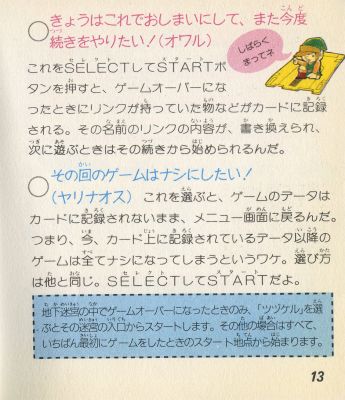 きょうはこれでおしまいにして、また今度
続きをやりたい!(オワル)
しばらく
まってネ
これをSELECTしてSTARTボ
タンを押すと、ゲームオーバーにな
ったときにリンクが持っていた物などがカードに記録
される。その名前のリンクの内容が、書き換えられ、
次に遊ぶときはその続きから始められるんだ。
その回のゲームはナシにしたい!
(ヤリナオス) これを選ぶと、ゲームのデータは
カードに記録されないまま、メニュー画面に戻るんだ。
つまり、今、カード上に記録されているデータ以降の
ゲームは全てナシになってしまうというワケ。選び方
は他と同じ。SELECTしてSTARTだよ。
地下迷宮の中でゲームオーバーになったときのみ、「ツヅケル」を選
ぶとその迷宮の入口からスタートします。その他の場合はすべて、
いちばん最初にゲームをしたときのスタート地点から始まります。
13